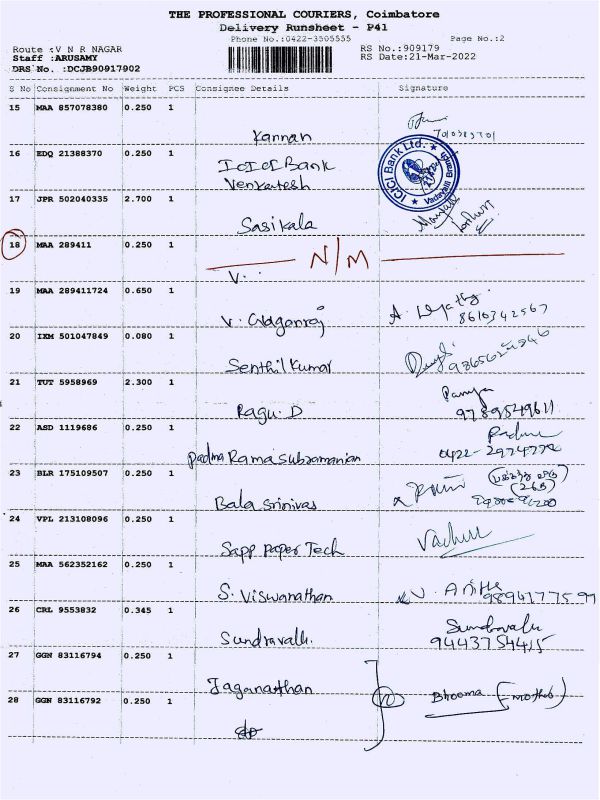 THE PROFESSIONAL COURIERS, Coimbatore
Delivery Runsheet - P41
Phone No.:0422-3505555 Page No.:2
Route :V N R NAGAR RS No.:909179
Staff :ARUSAMY RS Date:21-Mar-2022
DRS No. :DCJB90917902
S No Consignment No Weight PCS Consignee Details Signature
15 MAA 857078380 0.250 1
Kannan
16 EDQ 21388370 0.250 1
ICICI Bank
Venkatesh
ICICI Bank Ltd.
Vadavalli Branch
17 JPR 502040335 2.700 1
Sasikala
18 MAA 289411 0.250 1
N/M
V.
19 MAA 289411724 0.650 1
V.
8610342567
20 IXM 501047849 0.080 1
Senthil Kumar
21 TUT 5958969 2.300 1
Ragu. D
9789549611
22 ASD 1119686 0.250 1
Padma Rama Subramanian
0422-2974772
23 BLR 175109507 0.250 1
(265)
Bala Srinivas
24 VPL 213108096 0.250 1
Sapp Paper Tech
25 MAA 562352162 0.250 1
S. Viswanathan
26 CRL 9553832 0.345 1
Sundravalli
Sundravalli
9443754415
27 GGN 83116794 0.250 1
Jaganathan
Bhooma (mother)
28 GGN 83116792 0.250 1
do